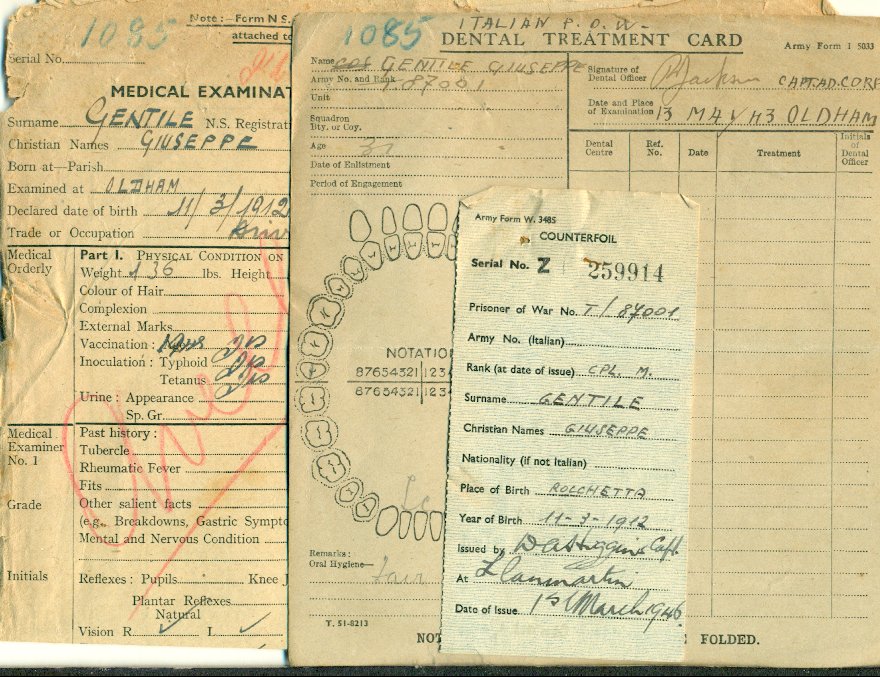 Note :– Form N S.
attached to
1085
Serial No.
MEDICAL EXAMINAT
Surname GENTILE N.S. Registrati
Christian Names GIUSEPPE
Born at—Parish
Examined at OLDHAM
Declared date of birth 11/3/1912
Trade or Occupation
Medical
Orderly
Part I. PHYSICAL CONDITION ON
Weight 136 lbs. Height
Colour of Hair
Complexion
External Marks
Vaccination :
Inoculation : Typhoid
Tetanus
Urine : Appearance
Sp. Gr.
Medical
Examiner
No. 1
Grade
Initials
Past history :
Tubercle
Rheumatic Fever
Fits
Other salient facts
(e.g. Breakdowns, Gastric Sympto
Mental and Nervous Condition
Reflexes : Pupils Knee J
Plantar Reflexes
Natural
Vision R. ✓ L ✓
1085
ITALIAN P.O.W-
DENTAL TREATMENT CARD
Army Form I 5033
Name GENTILE GIUSEPPE
Army No. and Rank 87001
Unit
Squadron
Bty. or Coy.
Age 31
Date of Enlistment
Period of Engagement
Signature of
Dental Officer Jackson CAPT.AD.CORP
Date and Place
of Examination 13 MAY 43 OLDHAM
Dental
Centre
Ref.
No.
Date
Treatment
Initials
of
Dental
Officer
NOTATIO
87654321 123
87654321 1234
Remarks :
Oral Hygiene— Fair
T. 51-8213
NOT
FOLDED.
Army Form W. 3485
COUNTERFOIL
Serial No. Z 259914
Prisoner of War No. T/87001
Army No. (Italian)
Rank (at date of issue) CPL. M.
Surname GENTILE
Christian Names GIUSEPPE
Nationality (if not Italian)
Place of Birth ROCCHETTA
Year of Birth 11-3-1912
Issued by Capt.
At Llanmartin
Date of Issue 1st March 1946